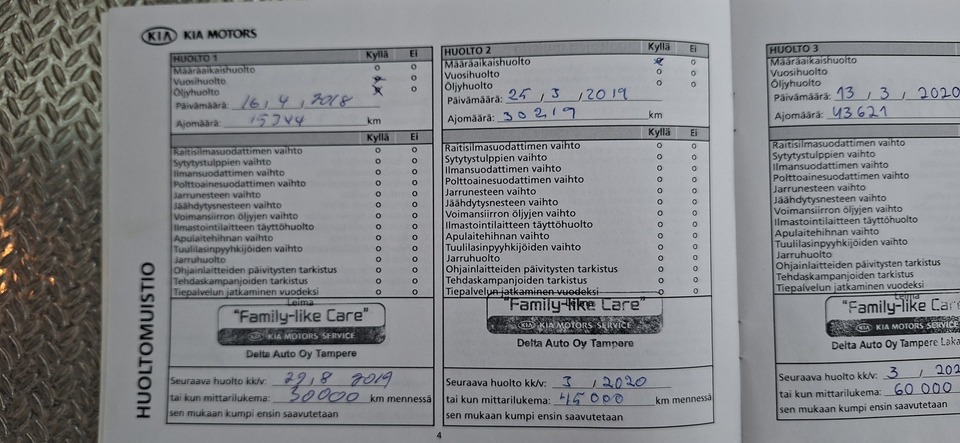 KIA KIA MOTORS
HUOLTO 1 Kyllä Ei
Määräaikaishuolto o o
Vuosihuolto o
Öljyhuolto o
Päivämäärä: 16, 4, 2018
Ajomäärä: 15344 km
Kyllä Ei
Raitisilmasuodattimen vaihto o o
Sytytystulppien vaihto o o
Ilmansuodattimen vaihto o o
Polttoainesuodattimen vaihto o o
Jarrunesteen vaihto o o
Jäähdytysnesteen vaihto o o
Voimansiirron öljyjen vaihto o o
Ilmastointilaitteen täyttöhuolto o o
Apulaitehihnan vaihto o o
Tuulilasinpyyhkijöiden vaihto o o
Jarruhuolto o o
Ohjainlaitteiden päivitysten tarkistus o o
Tehdaskampanjoiden tarkistus o o
Tiepalvelun jatkaminen vuodeksi o o
Leima
"Family-like Care"
KIA KIA MOTORS SERVICE
Delta Auto Oy Tampere
Seuraava huolto kk/v: 29, 8 2019
tai kun mittarilukema: 30000 km mennessä
sen mukaan kumpi ensin saavutetaan
HUOLTO 2 Kyllä Ei
Määräaikaishuolto o
Vuosihuolto o o
Öljyhuolto o o
Päivämäärä: 25, 3, 2019
Ajomäärä: 30219 km
Kyllä Ei
Raitisilmasuodattimen vaihto o o
Sytytystulppien vaihto o o
Ilmansuodattimen vaihto o o
Polttoainesuodattimen vaihto o o
Jarrunesteen vaihto o o
Jäähdytysnesteen vaihto o o
Voimansiirron öljyjen vaihto o o
Ilmastointilaitteen täyttöhuolto o o
Apulaitehihnan vaihto o o
Tuulilasinpyyhkijöiden vaihto o o
Jarruhuolto o o
Ohjainlaitteiden päivitysten tarkistus o o
Tehdaskampanjoiden tarkistus o o
Tiepalvelun jatkaminen vuodeksi o o
"Family-like Care"
KIA KIA MOTORS SERVICE
Delta Auto Oy Tampere
Seuraava huolto kk/v: 3, 2020
tai kun mittarilukema: 45000 km mennessä
sen mukaan kumpi ensin saavutetaan
HUOLTO 3
Määräaikaishuolto
Vuosihuolto
Öljyhuolto
Päivämäärä: 13, 3, 2020
Ajomäärä: 43621
Raitisilmasuodattimen vaihto
Sytytystulppien vaihto
Ilmansuodattimen vaihto
Polttoainesuodattimen vaihto
Jarrunesteen vaihto
Jäähdytysnesteen vaihto
Voimansiirron öljyjen vaihto
Ilmastointilaitteen täyttöhuolto
Apulaitehihnan vaihto
Tuulilasinpyyhkijöiden vaihto
Jarruhuolto
Ohjainlaitteiden päivitysten tarkistus
Tehdaskampanjoiden tarkistus
Tiepalvelun jatkaminen vuodeksi
Leima
"Family-like Car
KIA KIA MOTORS SERVICE
Delta Auto Oy Tampere Laka
Seuraava huolto kk/v: 3, 202
tai kun mittarilukema: 60 000
sen mukaan kumpi ensin saavutetaan
HUOLTOMUISTIO
4